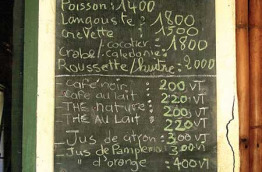 Poisson: 1400
Langouste: 1800
crevette : 1500
" /cocotier: 1800
Crabe/-Calédonie:
Roussette/huître: 2000
café noir : 200 VT
café au lait : 220 VT
THE nature : 200 VT
THE Au Lait : 220 VT
Jus de citron : 300 VT
Jus de Pamplem : 300 VT
" d'orange : 400 VT